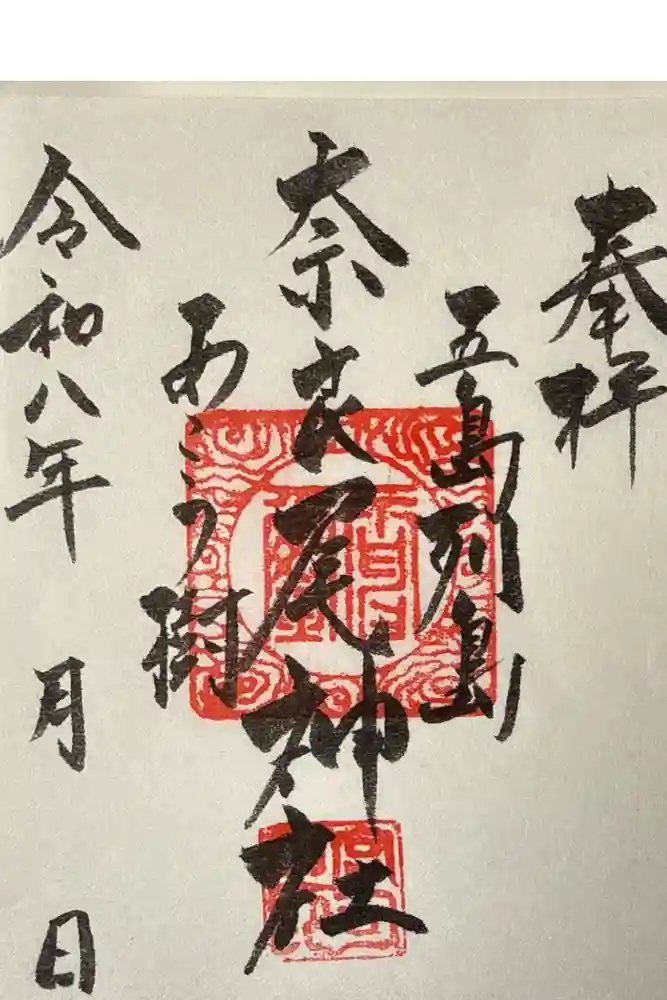 奉拝
五島列島
奈良尾神社
あこう樹
令和八年 月 日